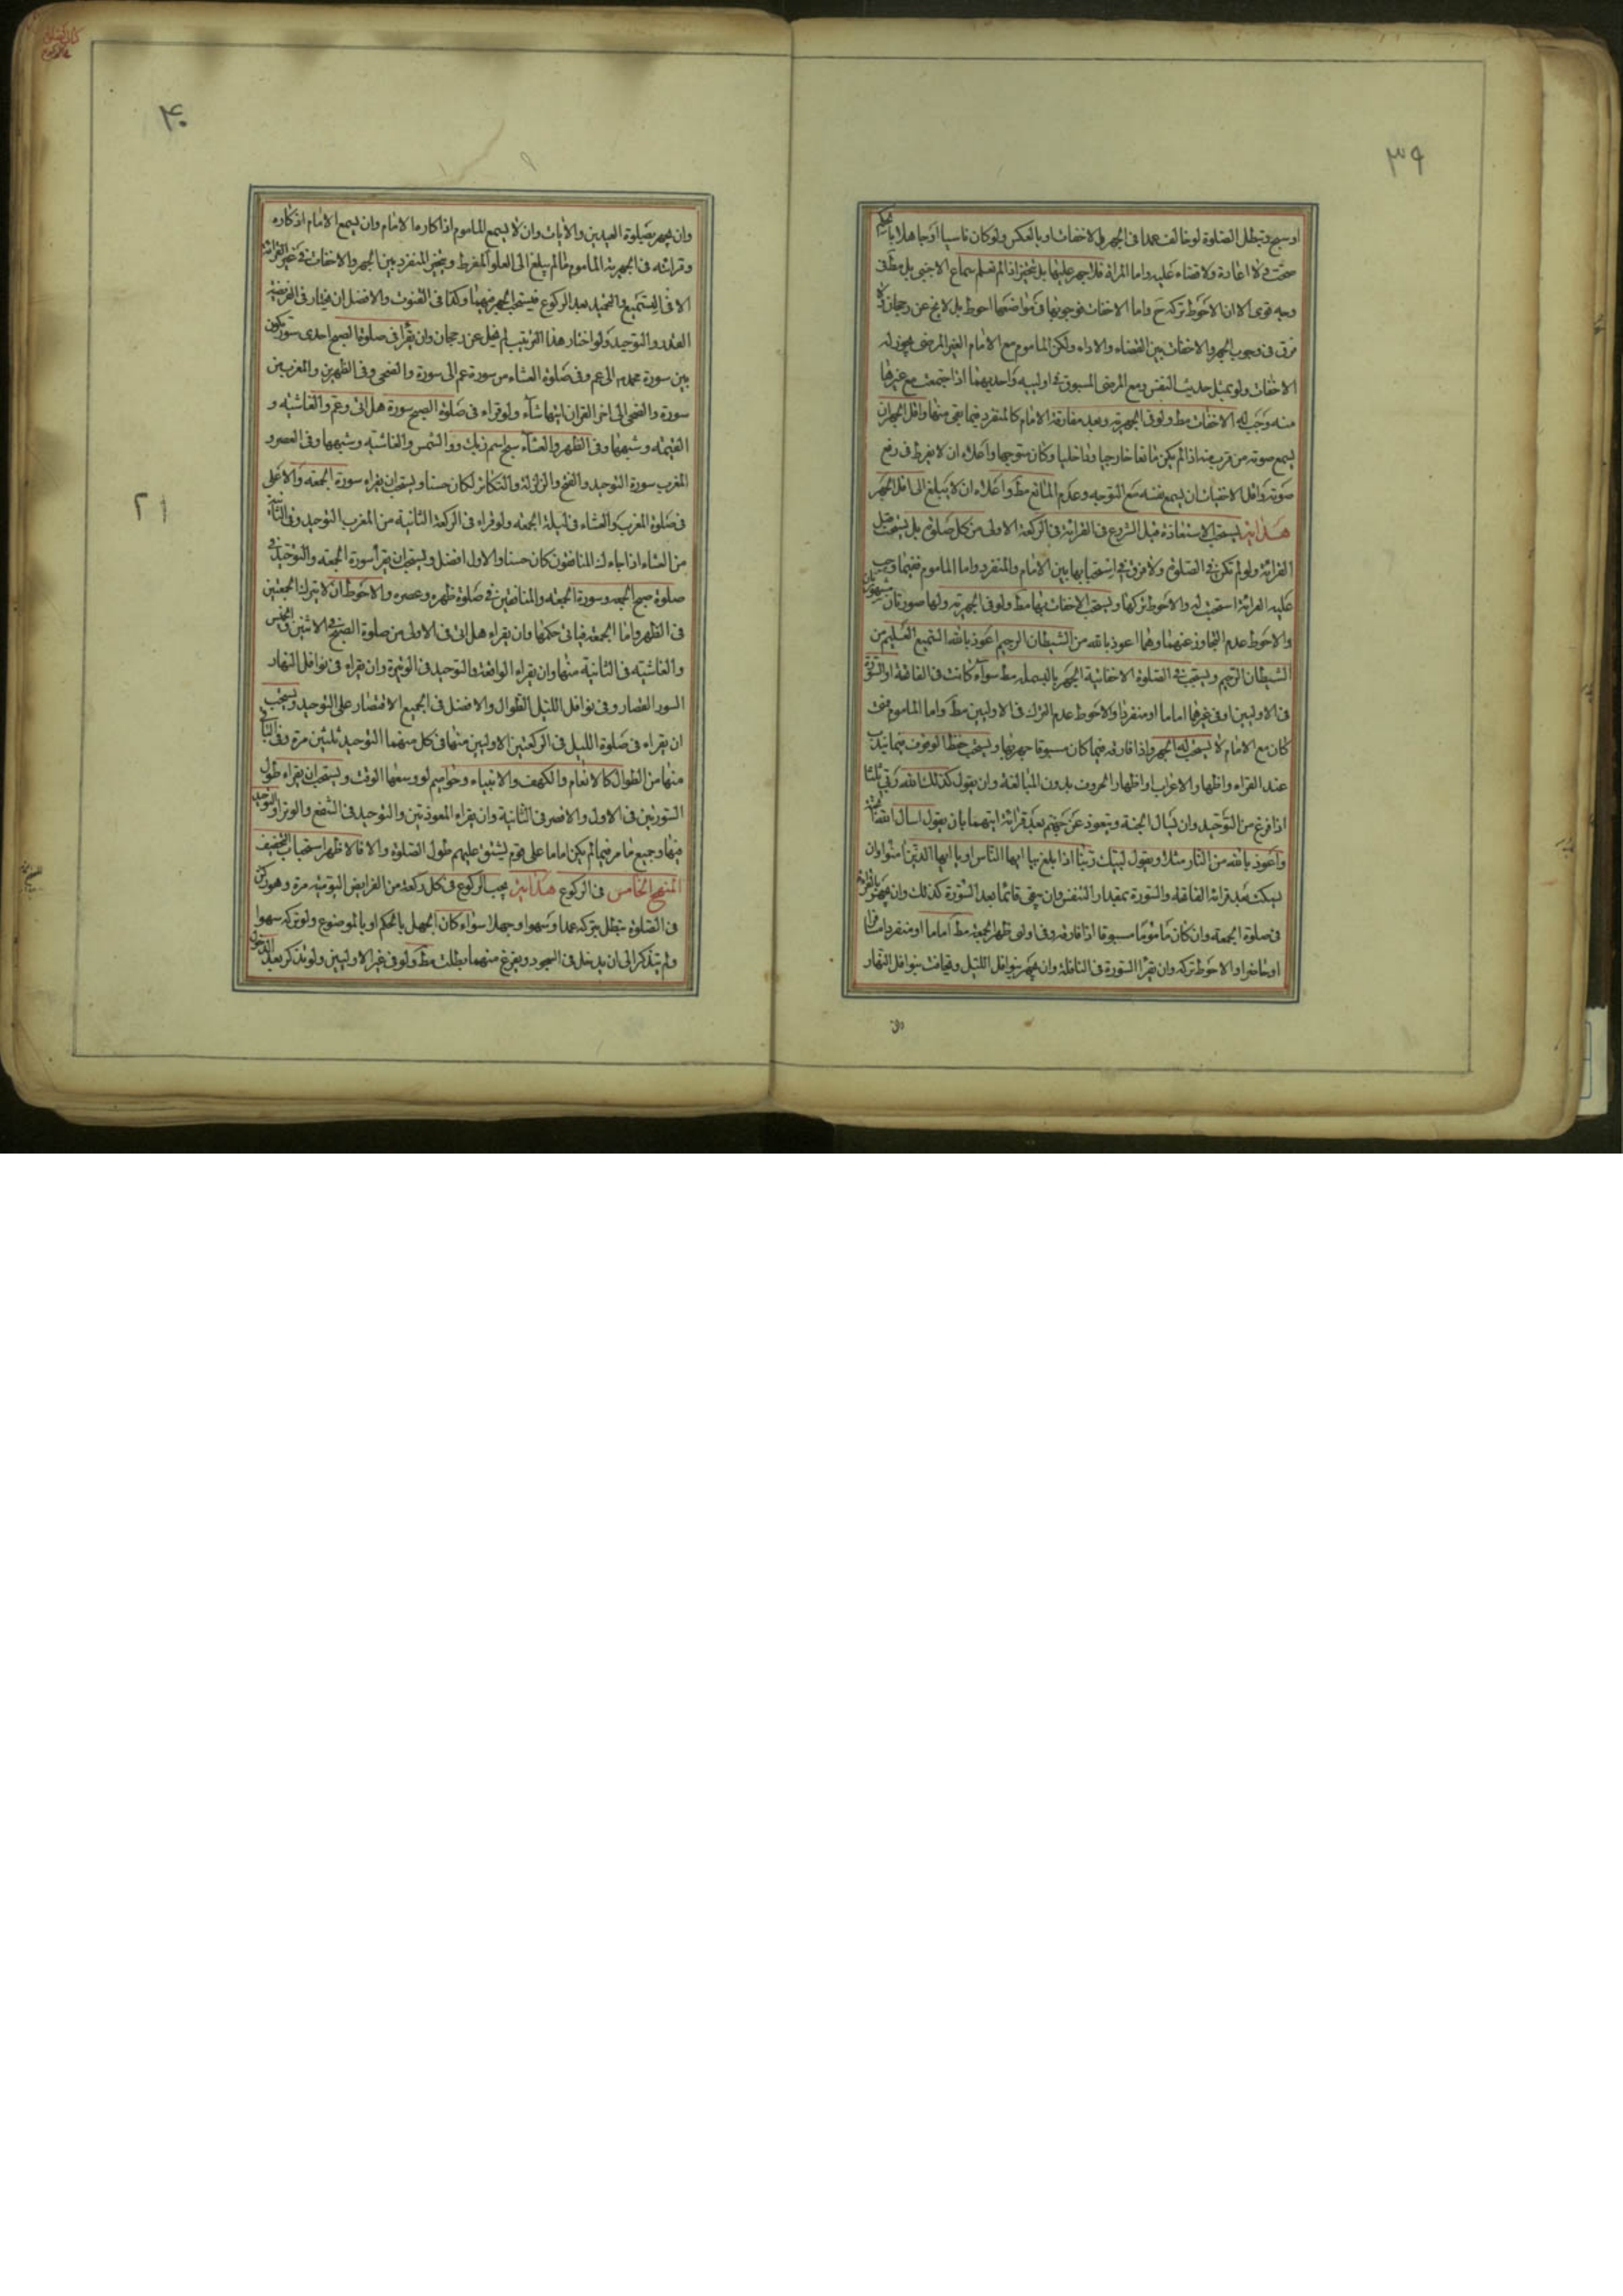 ٣٩
او سبح وتبطل الصلوة لو خالف عمدا فى الجهر والاخفات او بالعكس ولو كان ناسيا او جاهلا بالحكم
صحت ولا اعادة ولا قضاء عليه واما المراة فلا جهر عليها بل تتخير اذا لم تعلم سماع الاجنبى بل مط فى
وجه قوى الا ان الاحوط تركه ح واما الاخفات فوجوبها فى مواضعها احوط بل لا يخ عن رجحان ولا
فرق فى وجوب الجهر والاخفات بين القضاء والاداء ولكن الماموم مع الامام الغير المرضى يجوز له
الاخفات ولو بمثل حديث النفس ومع المرضى المسبوق فى اولييه واحديهما اذا اجتمعت مع غيرها
منه وجب له الاخفات مط ولو فى الجهرية وبعد مفارقة الامام كالمنفرد فيما بقى منها واقل الجهر ان
يسمع صوته من قرب منه اذا لم يكن مانعا خارجيا وداخليا وكان متوجها واعلاه ان لا يفرط فى رفع
صوته واقل الاخفات ان يسمع نفسه مع التوجه وعدم المانع مط واعلاه ان لا يبلغ الى اقل الجهر
هداية يستحب الاستعاذة قبل الشروع فى القرائة فى الركعة الاولى من كل صلوة بل يستحب قبل
القرائة ولو لم تكن فى الصلوة ولا فرق فى استحبابها بين الامام والمنفرد واما الماموم ففيما وجب
عليه القرائة استحب له والاحوط تركها ويستحب الاخفات بها مط ولو فى الجهرية ولها صورتان مشهورتان
والاحوط عدم التجاوز عنهما وهما اعوذ بالله من الشيطان الرجيم اعوذ بالله السميع العليم من
الشيطان الرجيم ويستحب فى الصلوة الاخفاتية الجهر بالبسملة مط سواء كانت فى الفاتحة او السورة
فى الاوليين او فى غيرهما اماما او منفردا والاحوط عدم الترك فى الاوليين مط واما الماموم فمتى
كان مع الامام لا يستحب له الجهر واذا فارقه فيما كان مسبوقا جهر بها ويستحب حفظ الوقوف فيما يندب
عند القراء واظهار الاعراب واظهار الحروف بدون المبالغة وان يقول كذلك الله ربى ثلثا
اذا فرغ من التوحيد وان يسال الجنة ويتعوذ عن جهنم بعد قرائة ايتهما بان يقول اسال الله الجنة
واعوذ بالله من النار مثلا ويقول لبيك ربنا اذا بلغ بيا ايها الناس او يا ايها الذين امنوا وان
يسكت بعد قرائة الفاتحة والسورة بمقدار النفس وان يبقى قائما بعد السورة كذلك وان يجهر بالقرائة
فى صلوة الجمعة وان كان ماموما مسبوقا اذا فارقه وفى اولى ظهر الجمعة مط اماما او منفردا مسافرا
او حاضرا والاحوط تركه وان يقرأ السورة فى النافلة وان يجهر بنوافل الليل ويخافت بنوافل النهار
وان
۴۰
وان يجهر بصلوة العيدين والايات وان لا يسمع الماموم اذكاره الامام وان يسمع الامام اذكاره
وقرائته فى الجهرية الماموم ما لم يبلغ الى العلو المفرط ويتخير المنفرد بين الجهر والاخفات فى غير القرائة
الا فى التسميع والتحميد بعد الركوع فيستحب الجهر فيهما وكذا فى القنوت والافضل ان يختار فى الفريضة
القدر والتوحيد ولو اختار هذا الترتيب لم يخل عن رجحان وان يقرأ فى صلوة الصبح احدى سور يكون
بين سورة محمد الى عم وفى صلوة العشاء من سورة عم الى سورة والضحى وفى الظهرين والمغرب من
سورة والضحى الى اخر القران ايتها شاء ولو قراء فى صلوة الصبح سورة هل اتى وعم والغاشية و
القيمة وشبهها وفى الظهر والعشاء سبح اسم ربك والشمس والغاشية وشبهها وفى العصر و
المغرب سورة التوحيد والفتح والزلزلة والتكاثر لكان حسنا ويستحب ان يقراء سورة الجمعة والاعلى
فى صلوة المغرب والعشاء فى ليلة الجمعة ولو قراء فى الركعة الثانية من المغرب التوحيد وفى الثانية
من العشاء اذا جاءك المنافقون كان حسنا والاول افضل ويستحب ان يقرأ سورة الجمعة والتوحيد فى
صلوة صبح الجمعة وسورة الجمعة والمنافقين فى صلوة ظهره وعصره والاحوط ان لا يترك الجمعتين
فى الظهر واما الجمعة فياتى حكمها وان يقراء هل اتى فى الاولى من صلوة الصبح فى الاثنين والخميس
والغاشية فى الثانية منها وان يقراء الواقعة والتوحيد فى الوتيرة وان يقراء فى نوافل النهار
السور القصار وفى نوافل الليل الطوال والافضل فى الجميع الاقتصار على التوحيد ويستحب
ان يقراء فى صلوة الليل فى الركعتين الاوليين منها فى كل منهما التوحيد ثلثين مرة وفى الباقى
منها من الطوال كالانعام والكهف والانبياء وحواميم لو وسعها الوقت ويستحب ان يقراء طول
السورتين فى الاول والاقصر فى الثانية وان يقراء المعوذتين والتوحيد فى الشفع والوتر او التوحيد
فيها وجميع ما مر فيما لم يكن اماما على قوم ليشق عليهم طول الصلوة والا فالاظهر استحباب التخفيف
المنهج الخامس فى الركوع هداية يجب الركوع فى كل ركعة من الفرايض اليومية مرة وهو ركن
فى الصلوة تبطل بتركه عمدا وسهوا وجهلا سواء كان الجهل بالحكم او بالموضوع ولو تركه سهوا
ولم يتذكر الى ان يدخل فى السجود ويفرغ منهما بطلت مط ولو فى غير الاوليين ولو تذكر بعد الدخول
٢١